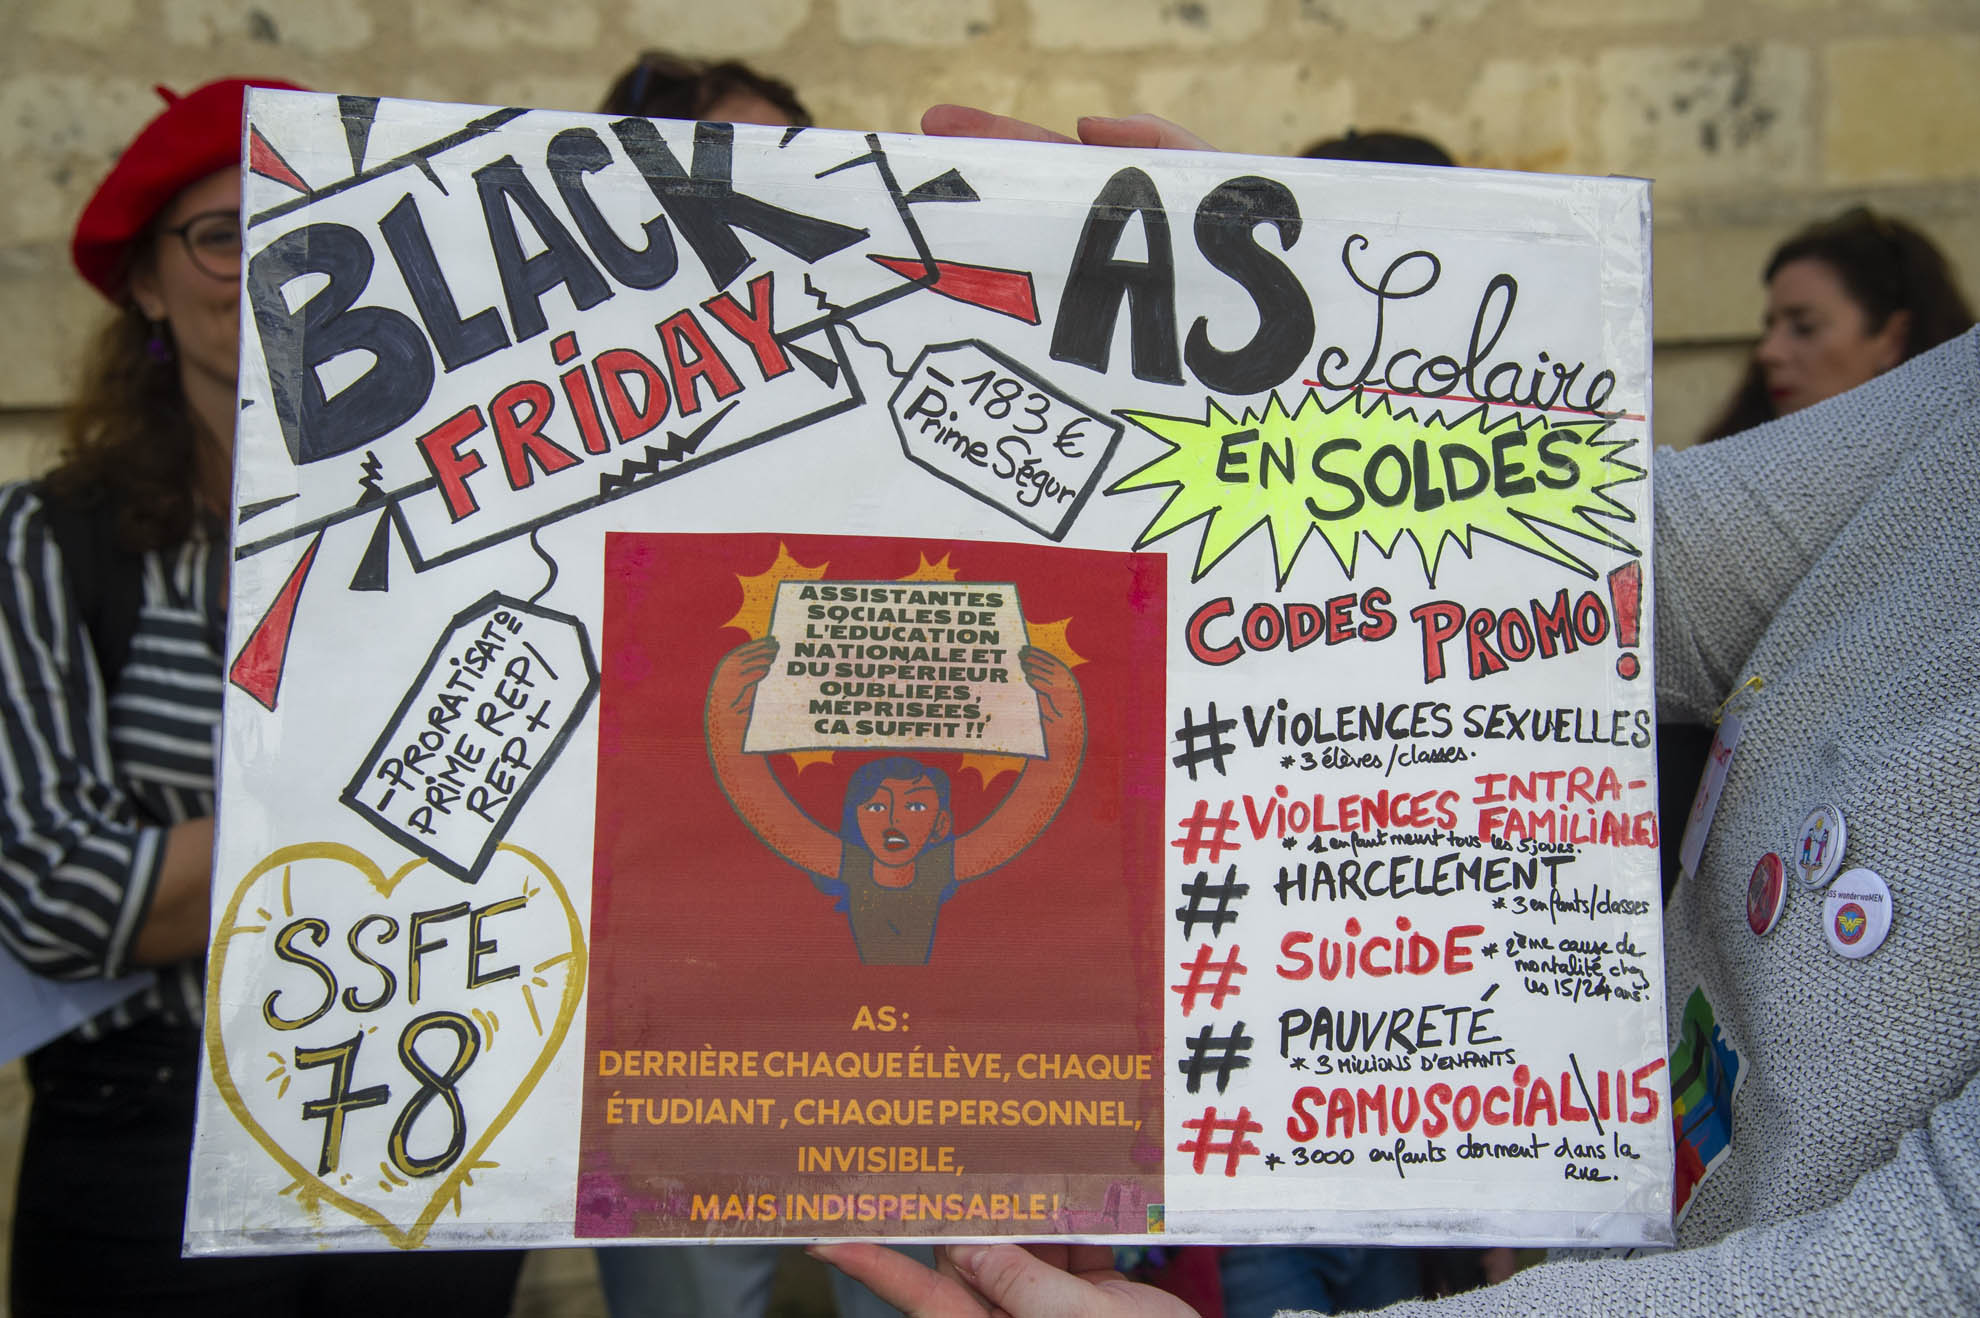 BLACK
FRIDAY
- 183 €
Prime Ségur
AS Scolaire
EN SOLDES
CODES PROMO!
- PRORATISATO
PRIME REP/
REP+
ASSISTANTES
SOCIALES DE
L'ÉDUCATION
NATIONALE ET
DU SUPÉRIEUR
OUBLIÉES,
MÉPRISÉES,
ÇA SUFFIT !!
AS :
DERRIÈRE CHAQUE ÉLÈVE, CHAQUE
ÉTUDIANT, CHAQUE PERSONNEL,
INVISIBLE,
MAIS INDISPENSABLE !
SSFE
78
# VIOLENCES SEXUELLES
* 3 élèves/classes.
# VIOLENCES INTRA-
FAMILIALES
* 1 enfant meurt tous les 5 jours.
# HARCELEMENT
* 3 enfants/classes
# SUICIDE * 2ème cause de
mortalité chez
les 15/24 ans.
# PAUVRETÉ
* 3 MILLIONS D'ENFANTS
# SAMUSOCIAL\115
* 3000 enfants dorment dans la
Rue.
ASS wonderwoMEN